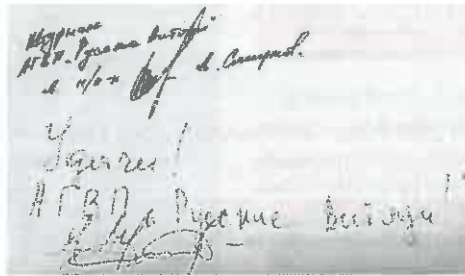 Журнал
АГВП "Русские Витязи"
л. п/п-к А. Смирнов.
Удачи!
АГВП "Русские Витязи"